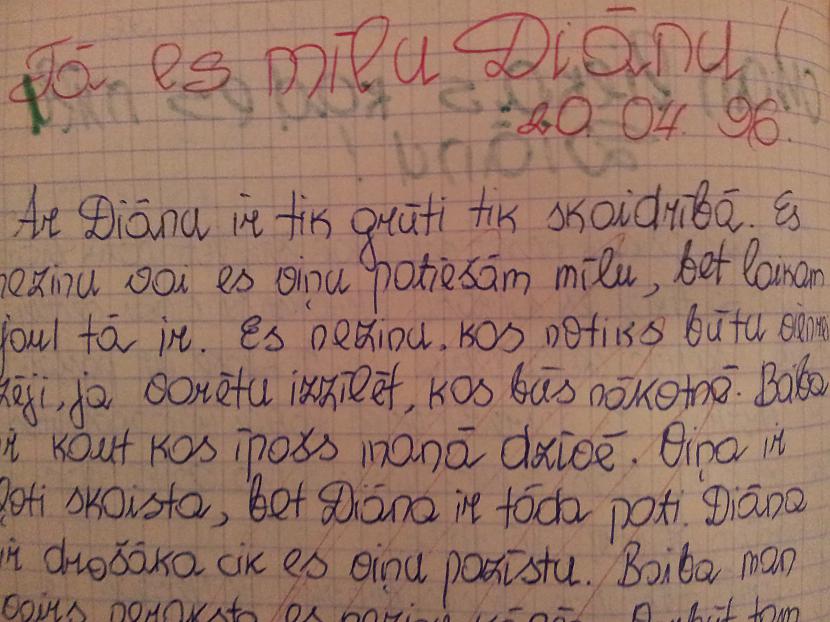 Jā es mīlu Diānu!
20 04. 96.
Ar Diānu ir tik grūti tik skaidrībā. Es
nezinu vai es viņu patiešām mīlu, bet laikam
jau tā ir. Es nezinu, kas notiks būtu
ja varētu izzīlēt, kas būs nākotnē. Baiba
ir kaut kas īpašs manā dzīvē. Viņa ir
ļoti skaista, bet Diāna ir tāda pati. Diāna
ir drošāka cik es viņu pazīstu. Baiba man
vairs neraksta es nezinu